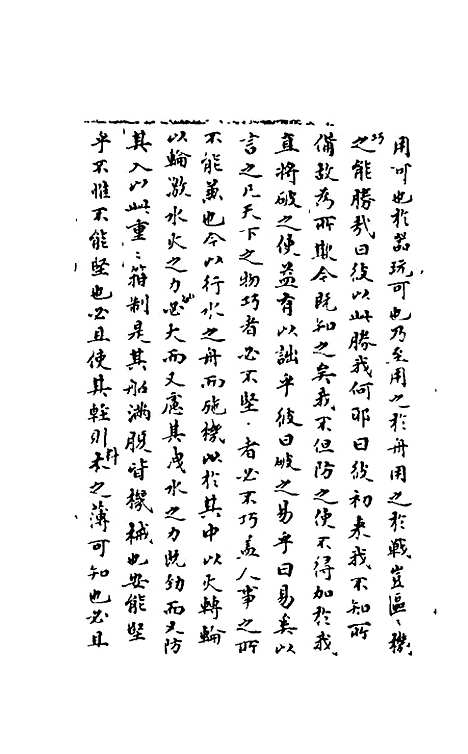 用可也於器玩可也乃至用之於舟用之於戰豈區〻機
巧之能勝哉曰彼以此勝我何耶曰彼初來我不知所
備故為所欺今既知之矣我不但防之使不得加於我
直將破之使益有以詘乎彼曰破之易乎曰易矣以
言之凡天下之物巧者必不堅堅者必不巧蓋人事之所
不能兼也今以行水之舟而施機以於其中以火轉輪
以輪激水火之力必大而又慮其洩水之力既劲而又防
其入以此重〻箱制是其船滿腹皆機械也安能堅
乎不惟不能堅也必且使其輕則木料之薄可知也必且